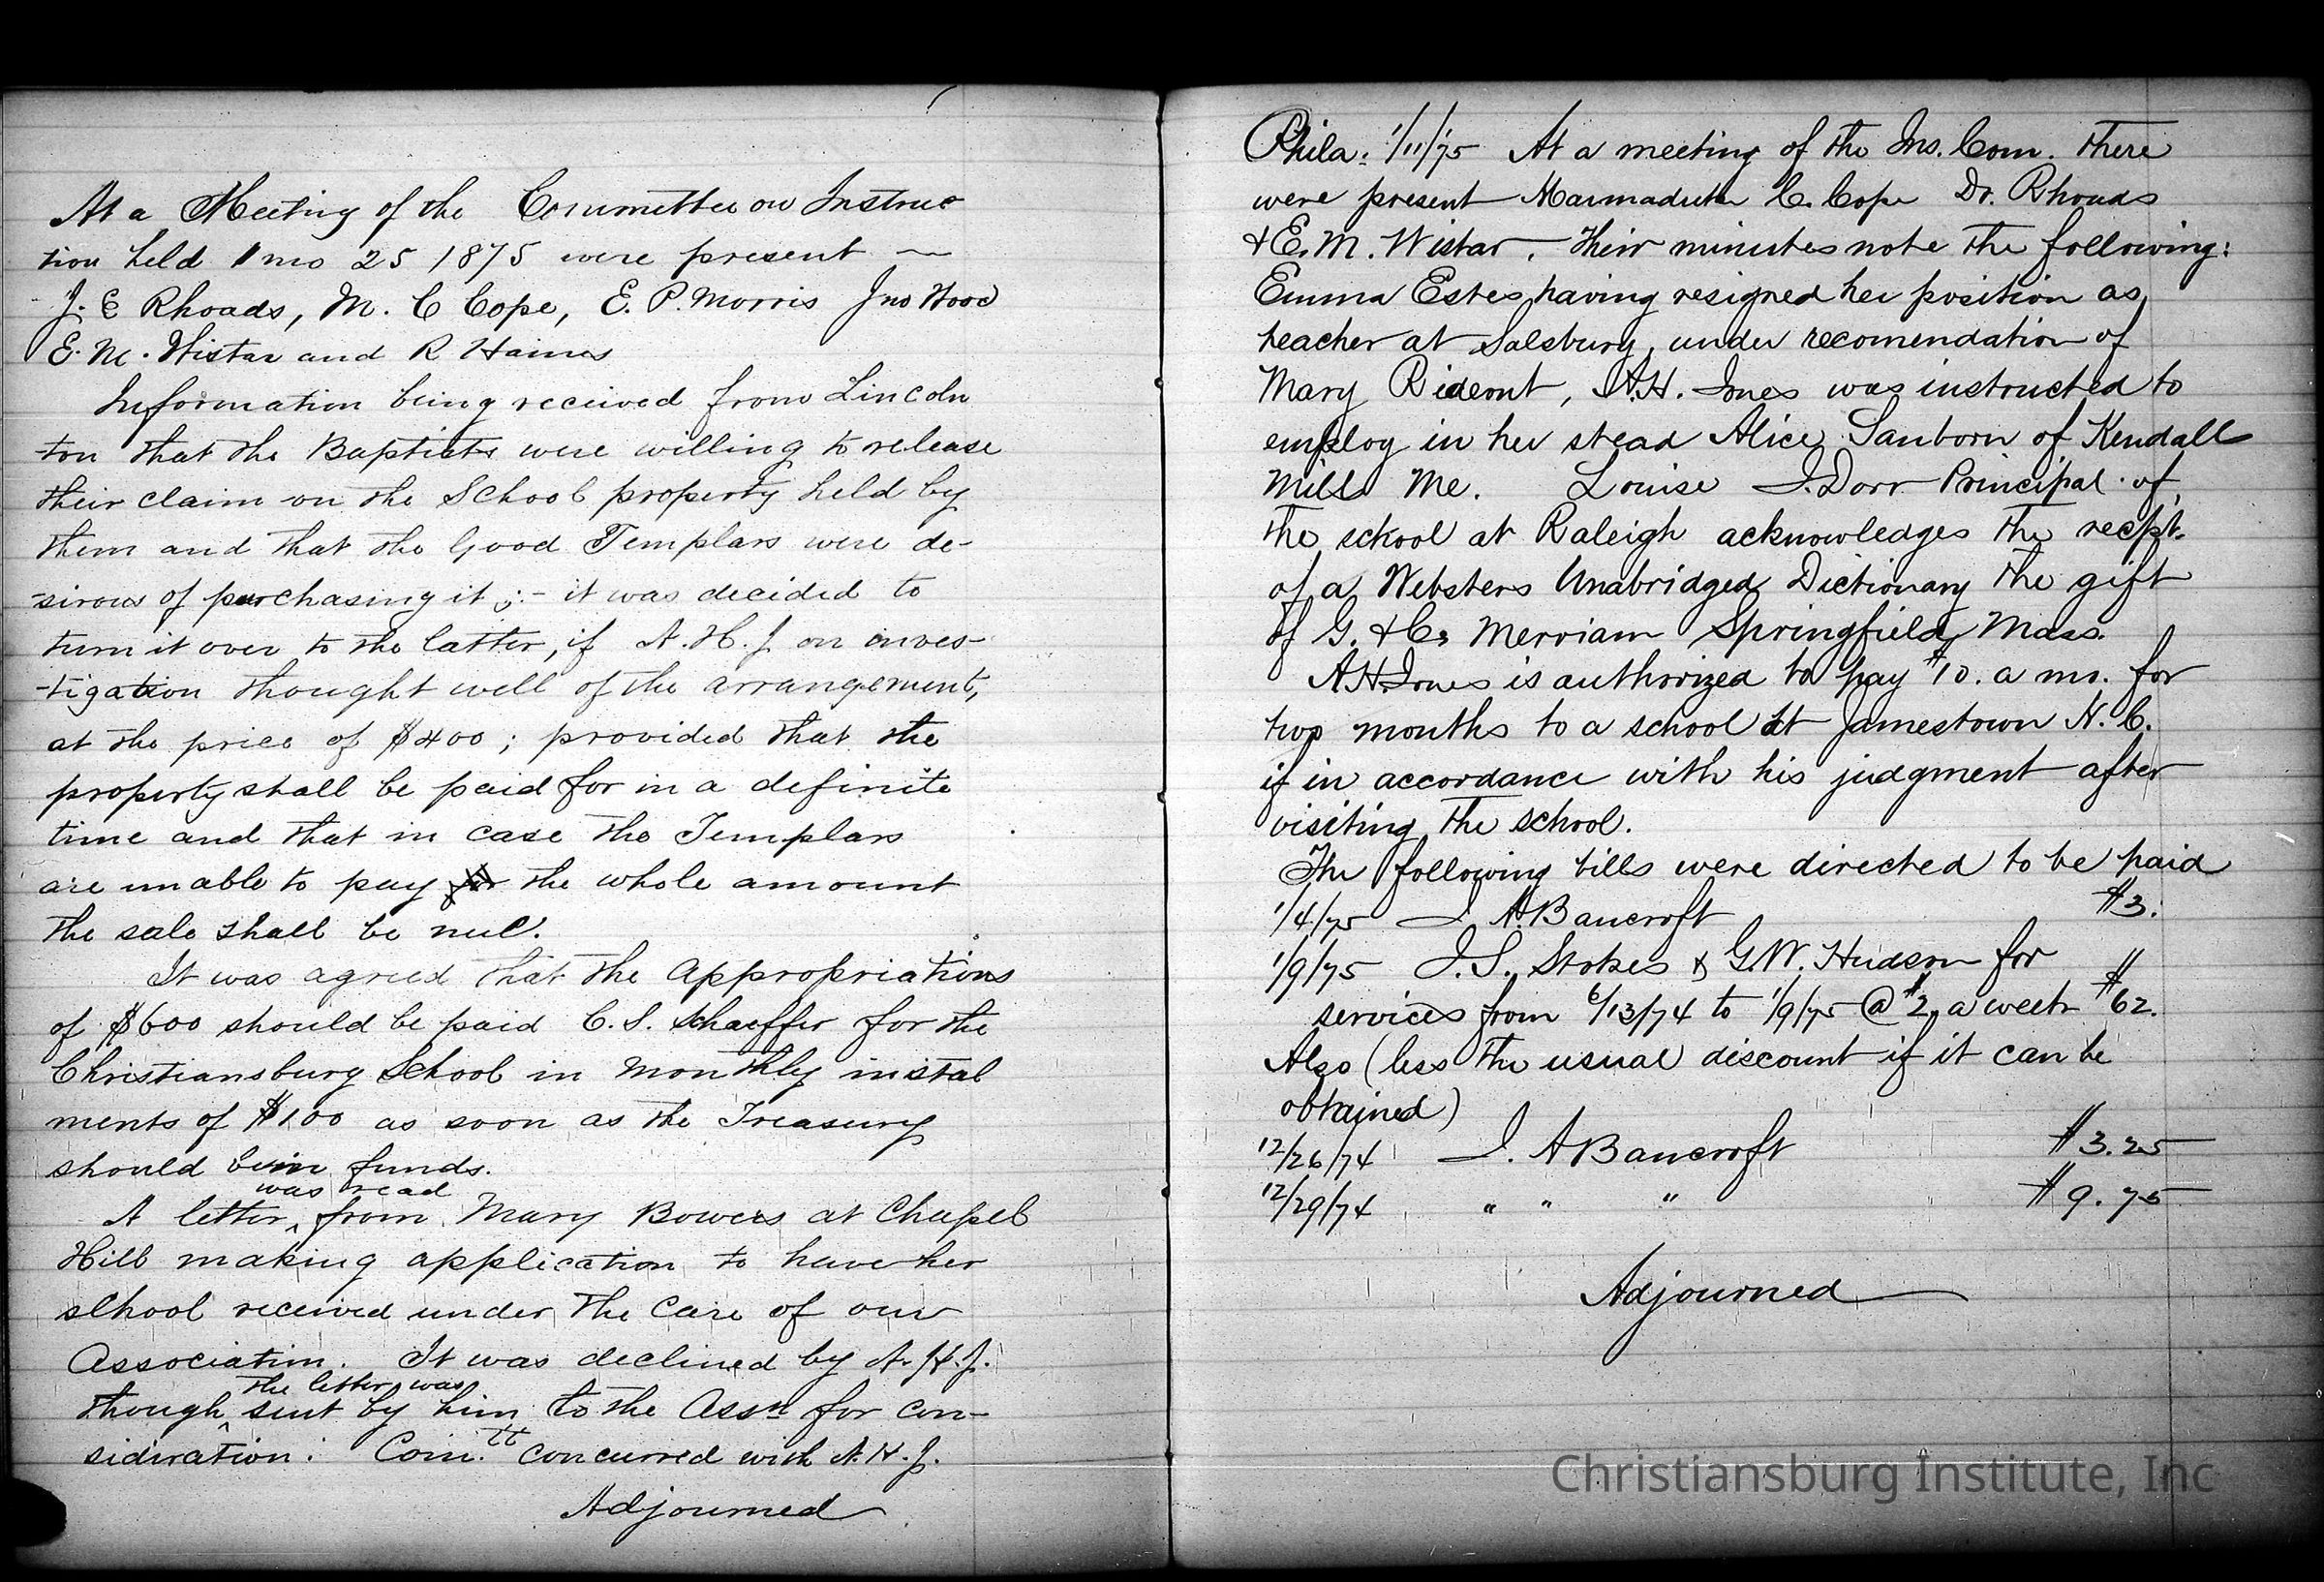 At a Meeting of the Committee on Instruc
tion held 1 mo 25 1875 were present
J. E Rhoads, M. C Cope, E. P. Morris Jno Hood
E. M. Wistar and R Haines
Information being received from Lincoln
-ton that the Baptists were willing to release
their claim on the School property held by
them and that the Good Templars were de-
-sirous of purchasing it ;- it was decided to
turn it over to the latter, if A. H. J. on inves-
-tigation thought well of the arrangement,
at the price of $400; provided that the
property shall be paid for in a definite
time and that in case the Templars
are unable to pay for the whole amount
the sale shall be null.
It was agreed that the Appropriations
of $600 should be paid C. S. Schaeffer for the
Christiansburg School in Monthly instal
ments of $100 as soon as the Treasury
should be in funds.
was read
A letter ^ from Mary Bowers at Chapel
Hill making application to have her
school received under the care of our
Association. It was declined by A. H. J.
the letter was
though ^ sent by him to the Assn for con-
sideration. Com.tt concurred with A. H. J.
Adjourned
Phila: 1/11/75 At a meeting of the Ins. Com. there
were present Marmaduke C. Cope Dr. Rhoads
& E. M. Wistar. Their minutes note the following:
Emma Estes having resigned her position as
teacher at Salsbury, under recomendation of
Mary Rideout, A.H. Jones was instructed to
employ in her stead Alice Sanborn of Kendall
Mills Me. Louise I. Dorr Principal of
the school at Raleigh acknowledges the recpt.
of a Websters Unabridged Dictionary the gift
of G. & C. Merriam Springfield, Mass.
A H Jones is authorized to pay $10. a mo. for
two months to a school at Jamestown N. C.
if in accordance with his judgment after
visiting the school.
The following bills were directed to be paid
1/4/75 J A. Bancroft $3.
1/9/75 J. S. Stokes & G.W. Hudson for
services from 6/13/74 to 1/9/75 @ $2 a week $62.
Also (less the usual discount if it can be
obtained)
12/26/74 J. A Bancroft $3.25
12/29/74 " " " $9.75
Adjourned
Christiansburg Institute, Inc